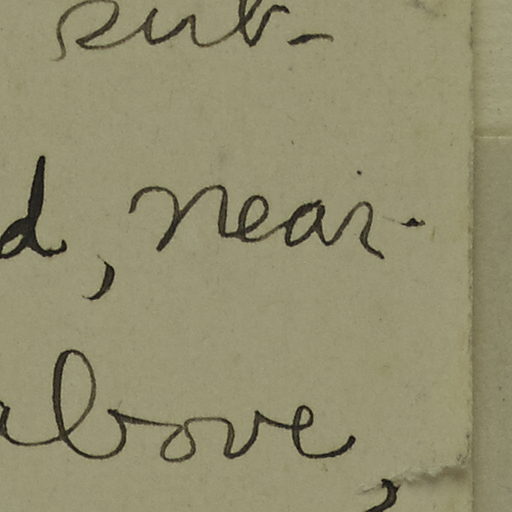 sub-
d, near-
above,